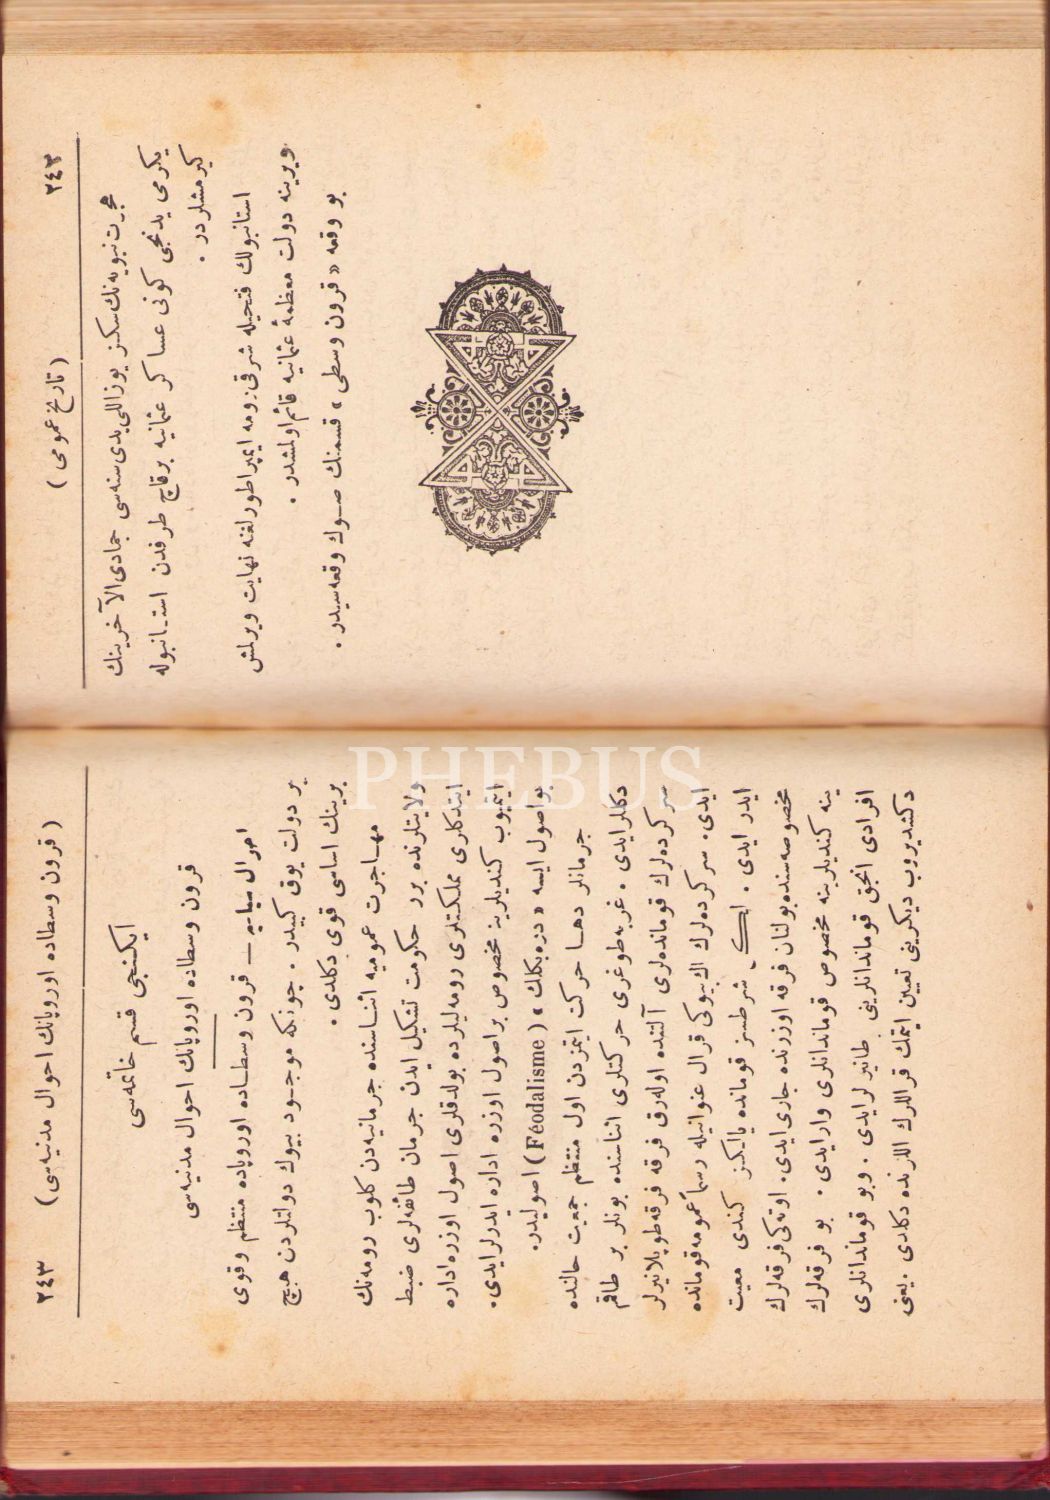 ٢٤٢
(تاريخ عمومى)
هجرت نبويه‌نك سكز يوز اللى يدى سنه‌سى جمادى الآخرينك
يكرمى يدنجى كونى عساكر عثمانيه برقاچ طرفدن استانبوله
كيرمشلردر.
استانبولك فتحيله شرقى رومه ايمپراطورلغنه نهايت ويرلمش
ويرينه دولت معظمهٔ عثمانيه قائم اولمشدر.
بو وقعه «قرون وسطى» قسمنك صوك وقعه‌سيدر.
(قرون وسطاده اوروپانك احوال مدنيه‌سى)
٢٤٣
ايكنجى قسم خاتمه‌سى
قرون وسطاده اوروپانك احوال مدنيه‌سى
احوال سياسيه — قرون وسطاده اوروپاده منتظم وقوى
بر دولت يوق كبيدر. چونكه موجود بيوك دولتلردن هيچ
برينك اساسى قوى دكلدى.
مهاجرت عموميه اثناسنده جرمانيه‌دن كلوب رومه‌نك
ولايتلرنده برر حكومت تشكيل ايدن جرمان طائفه‌لرى ضبط
ايتدكلرى مملكتلرى رومه‌ليلرده بولدقلرى اصول اوزره اداره
ايتميوب كنديلرينه مخصوص بر اصول اوزره اداره ايدرلرايدى.
بواصول ايسه «دره‌بكلك» (Féodalisme) اصوليدر.
جرمانلر دها حركت ايتمزدن اول منتظم جمعيت حالنده
دكلرايدى. غربه‌طوغرى حركتلرى اثناسنده بونلر بر طاقم
سركرده‌لرك قومانده‌لرى آلتنده اوله‌رق فرقه فرقه‌طوپلانيرلر
ايدى. سركرده‌لرك اك‌بيوكى قرال عنوانيله رسماً عمومه‌قومانده
ايدر ايدى. لكن شرطسز قومانده يالكز كندى معيت
مخصوصه‌سنده بولنان فرقه اوزرنده جارى‌ايدى. اوته‌كى‌فرقه‌لرك
ينه كنديلرينه مخصوص قوماندانلرى وارايدى. بو فرقه‌لرك
افرادى انجق قوماندانلرينى طانيرلرايدى. وبو قوماندانلرى
دكشديروب ديكرينى تعيين ايتمك قراللرك اللرنده دكلدى. يعنى
PHEBUS